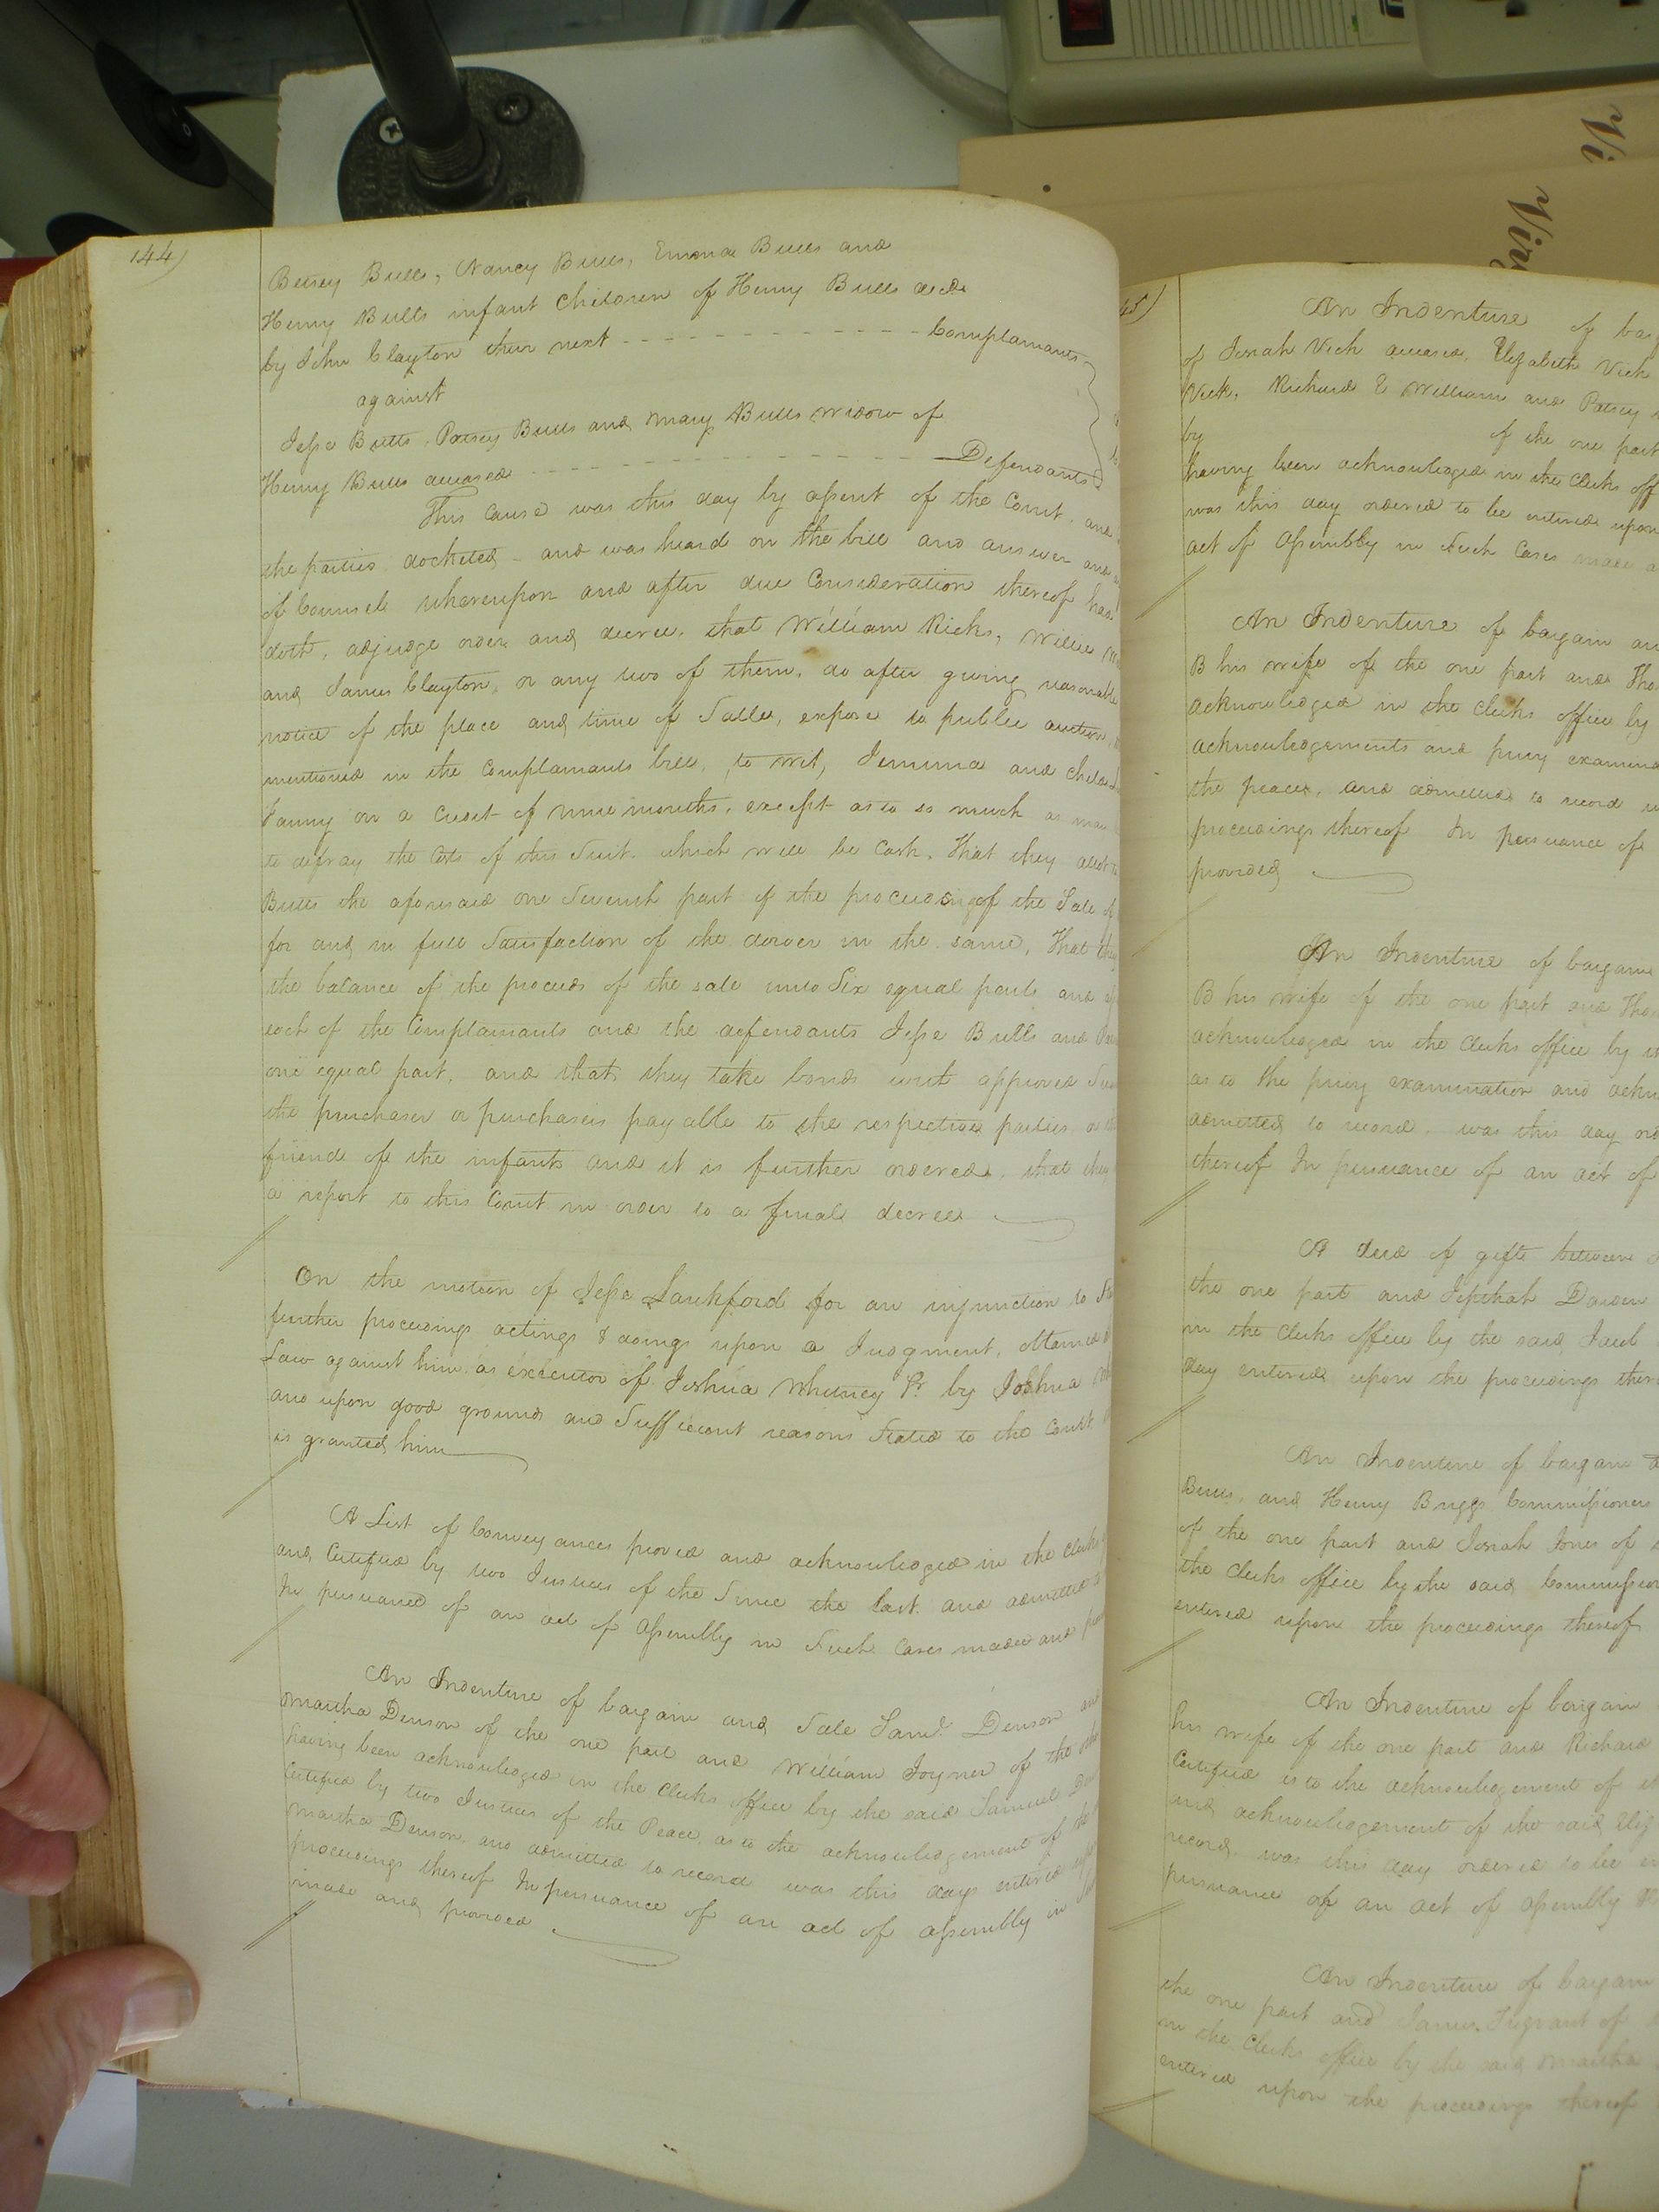 144)
Betsey Butts, Nancy Butts, Emma Butts and
Henry Butts infant Children of Henry Butts decd.
by John Clayton their next Complainants
against
Jesse Butts, Patsey Butts and Mary Butts widow of
Henry Butts deceased Defendants
This cause was this day by assent of the Court and
the parties docketed and was heard on the bill and answer and
of Counsels whereupon and after due Consideration thereof
doth, adjudge order and decree, that William Ricks, Willie
and James Clayton, or any two of them, do after giving reasonable
notice of the place and time of Salle, expose to public auction
mentioned in the Complainants bill, to wit, Jemima and child
Fanny on a Credit of nine months, except as to so much as may
to defray the Costs of this Suit, which will be Cash, That they allot to
Butts the aforesaid one Seventh part of the proceedings of the Sale of
for and in full Satisfaction of the dower in the same, That they
the balance of the proceeds of the sale into Six equal parts and
each of the Complainants and the defendants Jesse Butts and
one equal part, and that they take bonds with approved
the purchaser or purchasers payable to the respective parties or
friends of the infants and it is further ordered, that they
a report to this Court in order to a final decree
On the motion of Jesse Lankford for an injunction to
further proceedings actings & doings upon a Judgment, obtained
Law against him as executor of Joshua Whitney Sr. by Joshua
and upon good grounds and Sufficient reasons Stated to the Court
is granted him
A List of Conveyances proved and acknowledged in the Clerks
and Certified by two Justices of the Since the last and admitted
In pursuance of an act of Assembly in Such Cases made and
An Indenture of bargain and Sale Saml. Denson and
Martha Denson of the one part and William Joyner of the other
having been acknowledged in the Clerks office by the said Samuel
Certified by two Justices of the Peace, as to the acknowledgement of the
Martha Denson, and admitted to record was this day entered
proceedings thereof In pursuance of an act of Assembly in
made and provided
45)
An Indenture of
of Josiah Vick deceased, Elizabeth Vick
Vick, Richard E William and Patsey
by of the one part
having been acknowledged in the Clerks
was this day ordered to be entered upon
act of Assembly in Such Cases made
An Indenture of bargain
B his wife of the one part and
acknowledged in the Clerks office by
acknowledgements and privy
the peace, and admitted to record
proceedings thereof In pursuance of
provided
An Indenture of bargain
B his wife of the one part and
acknowledged in the Clerks office by
as to the privy examination and
admitted to record, was this day
thereof In pursuance of an act of
A deed of gift between
the one part and Jepthah Darden
in the Clerks office by the said
day entered upon the proceedings
An Indenture of bargain
Butts, and Henry Briggs Commissioners
of the one part and Josiah Jones of
the Clerks office by the said
entered upon the proceedings thereof
An Indenture of bargain
his wife of the one part and Richard
Certified as to the acknowledgement of
and acknowledgement of the said
record, was this day ordered to be
pursuance of an act of Assembly
An Indenture of bargain
the one part and James of
in the Clerks office by the said Martha
entered upon the proceedings thereof
Vi